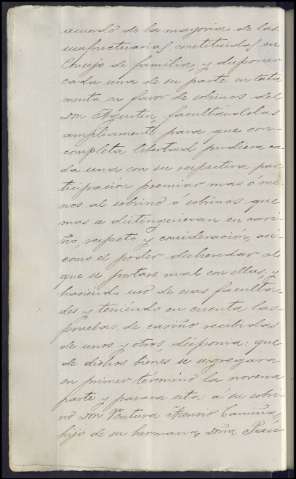 acuerdo de la mayoria de las
usufructuarias constituidas en
Consejo de familia, y disponer
cada una de su parte en testa
mento a favor de sobrinos del
Dn Agustin facultandolas
ampliamente para que con
completa libertad pudiera ca
da una con su respectiva par
ticipacion premiar mas ó me
nos al sobrino ó sobrinos que
mas se distinguieran en cari
ño, respeto y consideracion, asi
como el poder desheredar al
que se portase mal con ellas, y
haciendo uso de esas faculta
des y teniendo en cuenta las
pruebas de cariño recibidas
de unos y otros dispone: que
de dichos bienes se segregara
en primer término la novena
parte y pasara esta a su sobri
no Dn Ventura
hijo de su hermana Doña